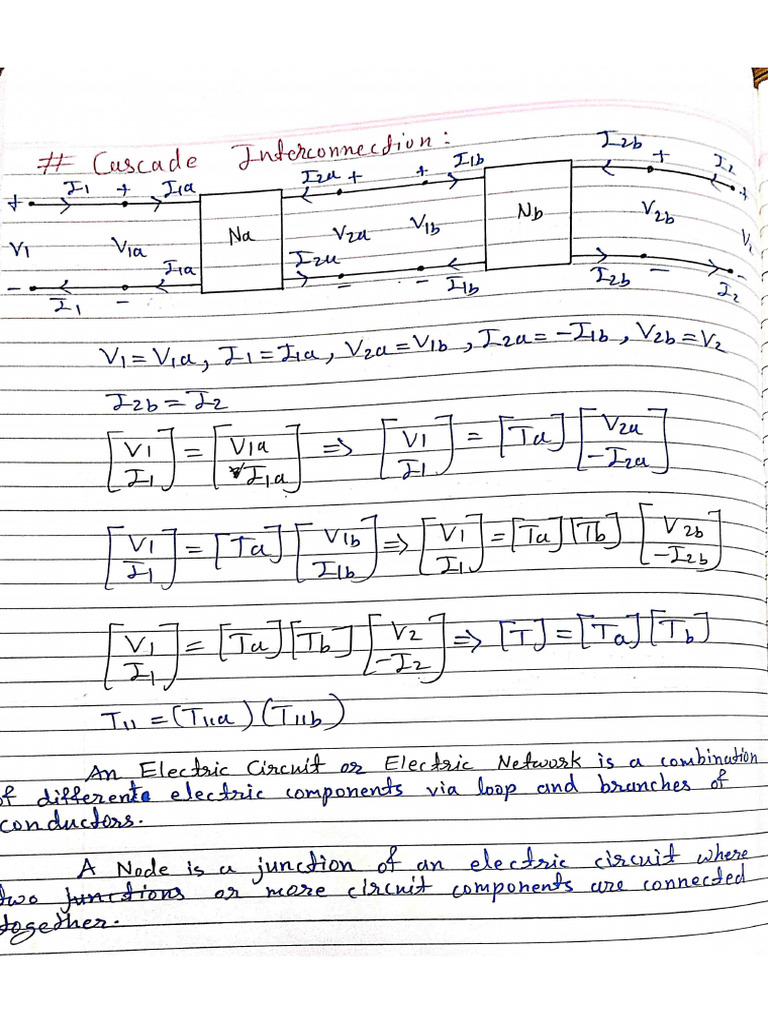 # Cascade Interconnection:
I1 I1a I2a I1b I2b I2
+ + + + + +
V1 V1a Na V2a V1b Nb V2b
I1a I2a
- - - - - -
I1 I1b I2b I2
V1 = V1a, I1 = I1a, V2a = V1b, I2a = -I1b, V2b = V2
I2b = I2
[V1 / I1] = [V1a / I1a] ⇒ [V1 / I1] = [Ta] [V2a / -I2a]
[V1 / I1] = [Ta] [V1b / I1b] ⇒ [V1 / I1] = [Ta] [Tb] [V2b / -I2b]
[V1 / I1] = [Ta] [Tb] [V2 / -I2] ⇒ [T] = [Ta] [Tb]
T11 = (T11a) (T11b)
An Electric Circuit or Electric Network is a combination
of differente electric components via loop and branches of
conductors.
A Node is a junction of an electric circuit where
two junctions or more circuit components are connected
together.